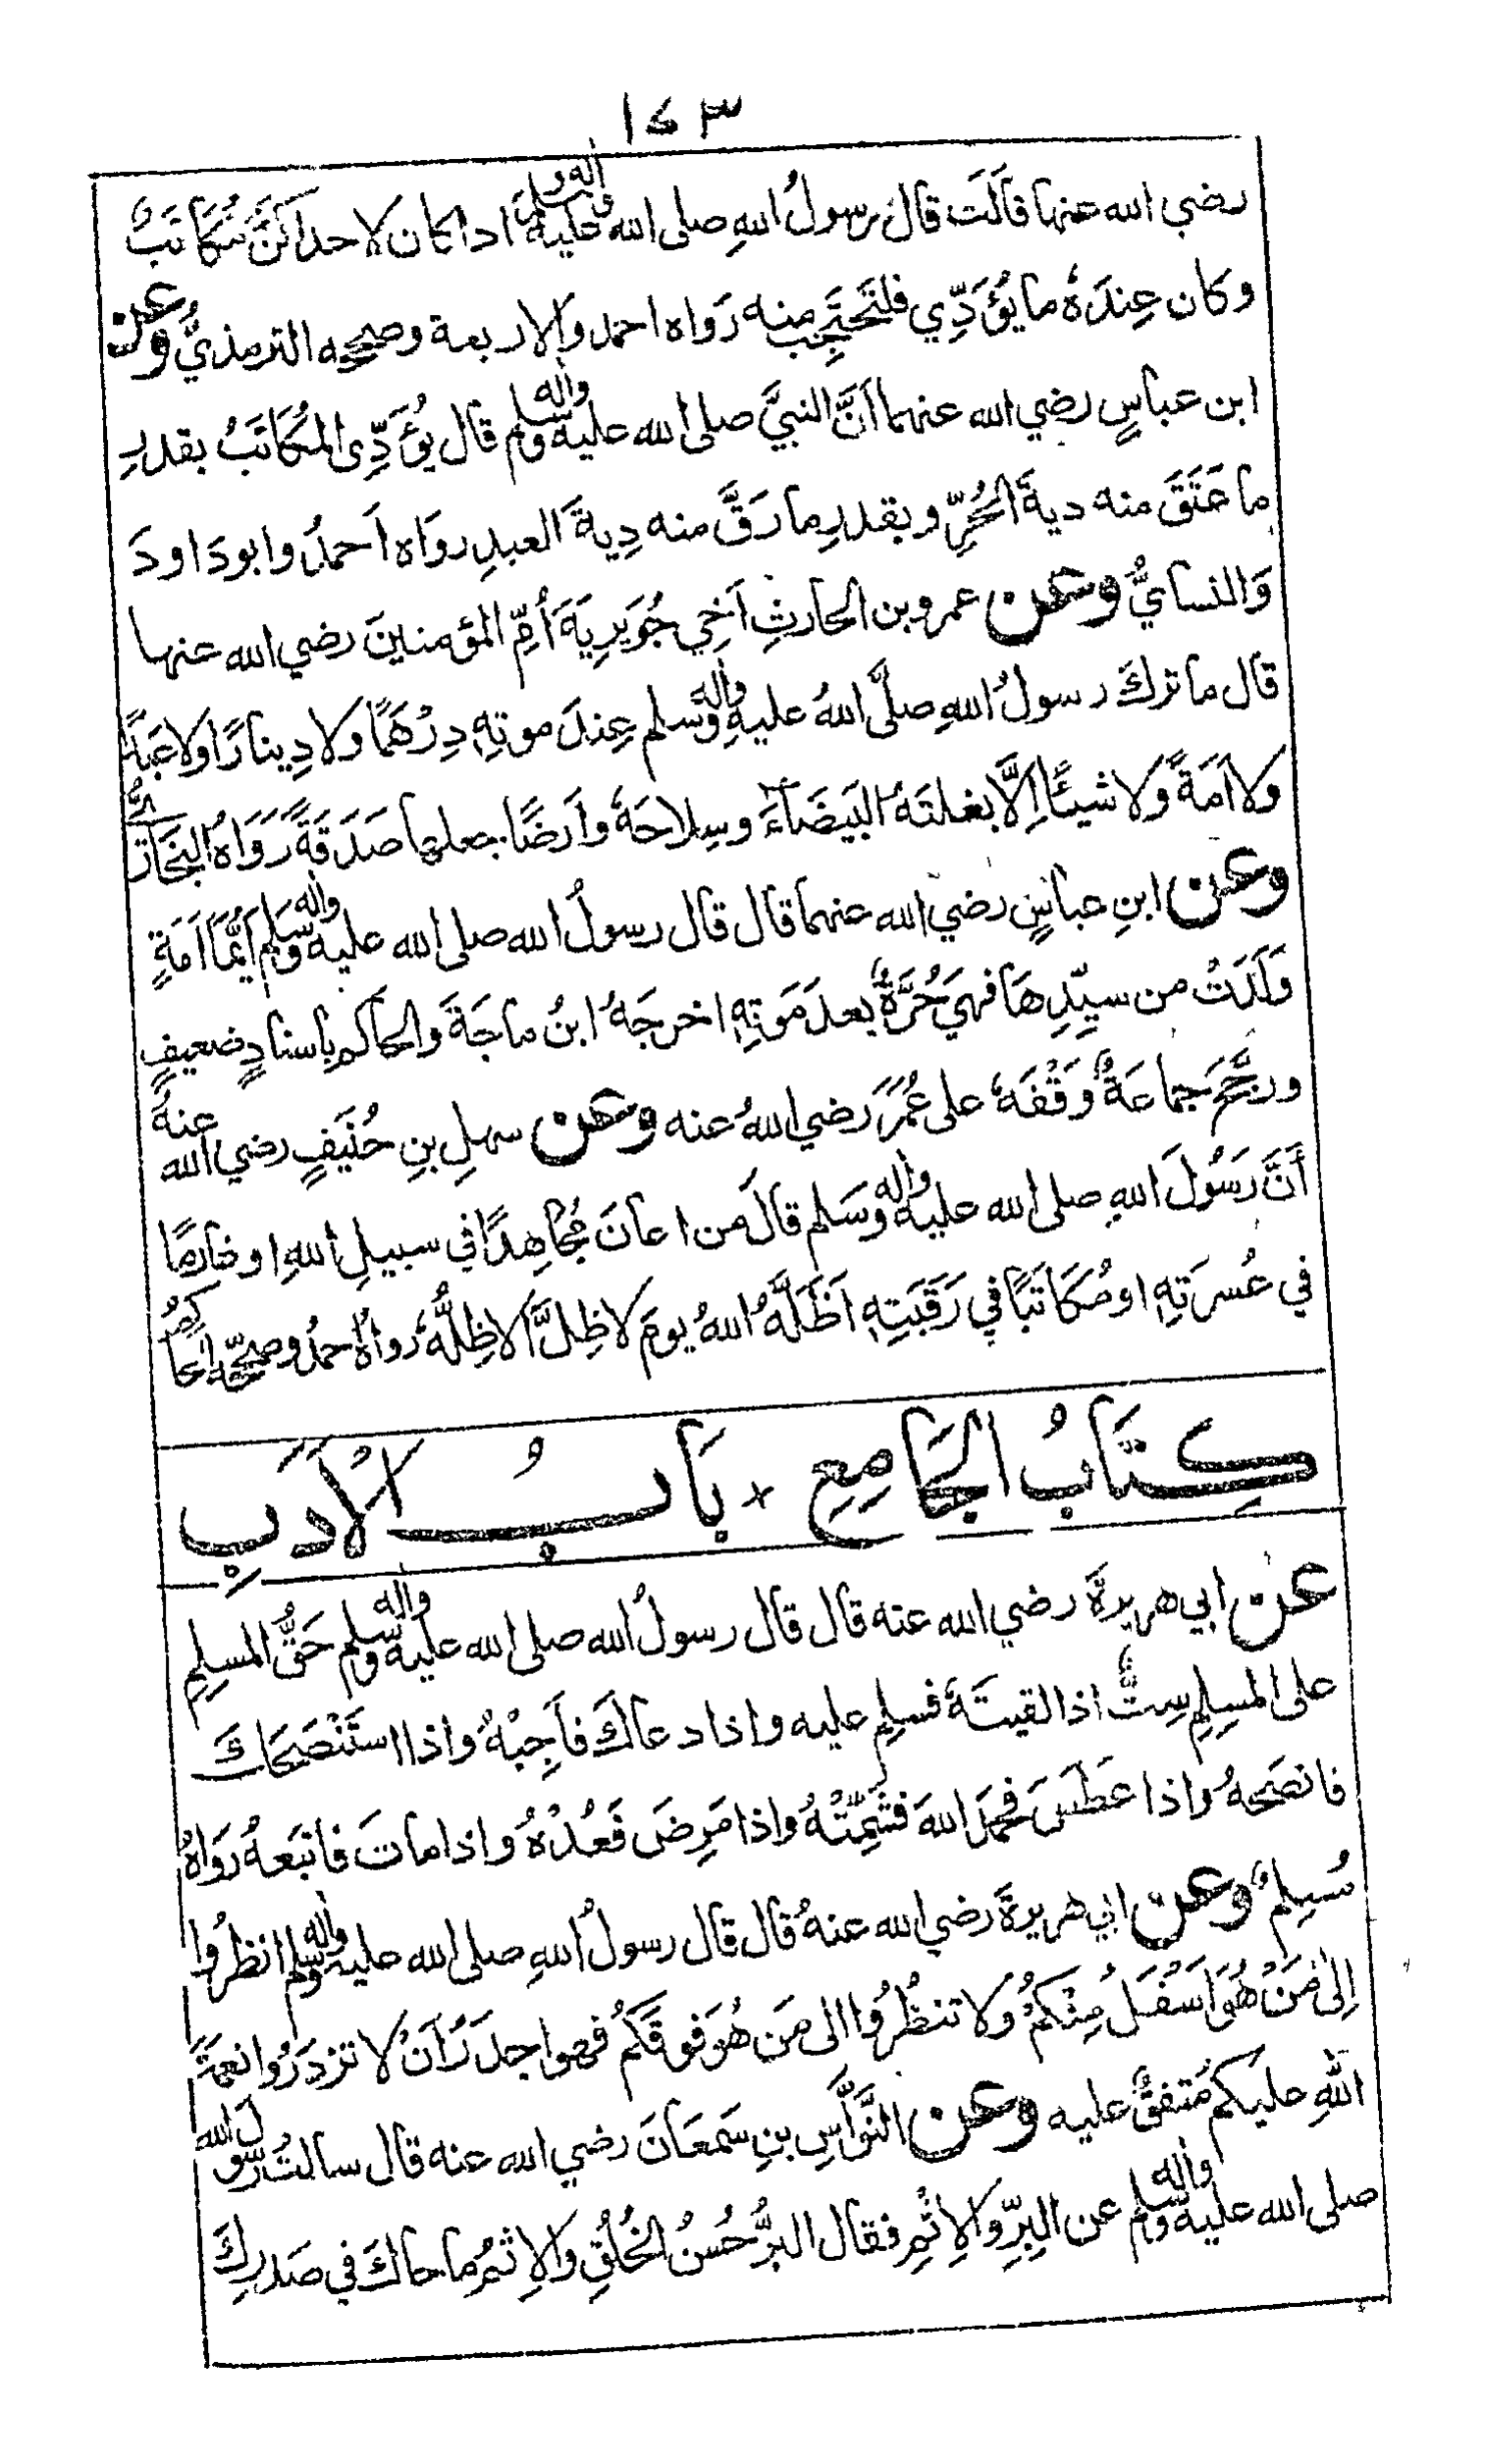 ١٤٣
رضي الله عنها قالَت قالَ رسولُ اللهِ صلى الله عليه واله وسلم اذا كان لاحداكنَّ مُكَاتَبٌ
وكان عِندَهُ ما يُؤَدِّي فلتَحتَجِب منه رَواه احمد والاربعة وصححه الترمذيُّ وعن
ابن عباسٍ رضي الله عنهما اَنَّ النبيَّ صلى الله عليه واله وسلم قال يُؤَدِّى المُكَاتَبُ بقدرِ
ما عَتَقَ منه ديةَ الحُرِّ وبقدرِ ما رَقَّ منه دِيةَ العبدِ روَاه اَحمدُ وابو دَاودَ
وَالنسايُّ وعن عمرو بن الحارثِ اَخِي جُوَيرِيَةَ اُمِّ المؤمنينَ رضي الله عنها
قال ما تركَ رسولُ اللهِ صلَّى اللهُ عليهِ واله وسلم عِندَ موتِهٖ دِرْهَمًا ولا دِينارًا ولا عَبدًا
ولا اَمَةً ولا شيئًا اِلَّا بغلتَهُ البَيضَاءَ وسِلاحَهٗ وَاَرضًا جعلها صَدَقَةً رَوَاهُ البُخَاريُّ
وعن ابنِ عباسٍ رضي الله عنهما قال قال رسولُ الله صلى الله عليه واله وسَلم اَيُّمَا اَمَةٍ
وَلَدَتْ من سيِّدِهَا فهيَ حُرَّةٌ بعدَ مَوتِهٖ اخرجَهُ ابنُ ماجَةَ والحاكم بِاسنادٍ ضعيفٍ
ورجَّحَ جماعَةٌ وَقْفَهٗ على عُمَرَ رضي اللهُ عنه وعن سهلِ بنِ حُنَيفٍ رضي الله عنهُ
أَنَّ رَسُولَ اللهِ صلى الله عليه واله وسَلم قالَ من اعانَ مُجَاهِدًا في سبيلِ اللهِ او غارِمًا
في عُسرَتِهٖ او مُكَاتَبًا في رَقَبَتِهٖ اَظَلَّهُ اللهُ يومَ لا ظِلَّ اِلا ظِلُّهٗ رواهُ احمدُ وصححَّه الحاكمُ
كِتَابُ الجَامِعِ + بَابُ الْاَدَبِ
عن ابي هريرةَ رضي الله عنه قال قال رسولُ الله صلى الله عليه واله وسلم حَقُّ المسلِمِ
على المسلِمِ سِتٌّ اذا لقيتَهٗ فسلِم عليه واذا دعاكَ فاَجِبْهُ واذا استَنْصَحَكَ
فانصَحهُ واذا عَطَسَ فحمدَ اللهَ فشَمِّتْهُ واذا مَرِضَ فَعُدْهُ واذا ماتَ فاتبَعهُ رَوَاهُ
مُسلِمٌ وعن ابي هريرةَ رضي الله عنهُ قال قال رسولُ اللهِ صلى الله عليه واله وسلم انظرُوا
اِلىٰ مَنْ هُوَ اَسْفَلُ مِنْكُمْ وَلا تنظُرُوا الى مَن هُوَ فوقَكُم فهو اجدَرُ اَنْ لا تزدَرُوا نعمَةَ
اللهِ عليكم مُتفقٌ عليه وعن النَّوَّاسِ بنِ سَمعَانَ رضي الله عنه قال سالتُ رسولَ الله
صلى الله عليه واله وسلم عن البِرِّ والاِثْمِ فقال البرُّ حُسنُ الخُلُقِ والاِثمُ ما حاكَ في صَدرِكَ